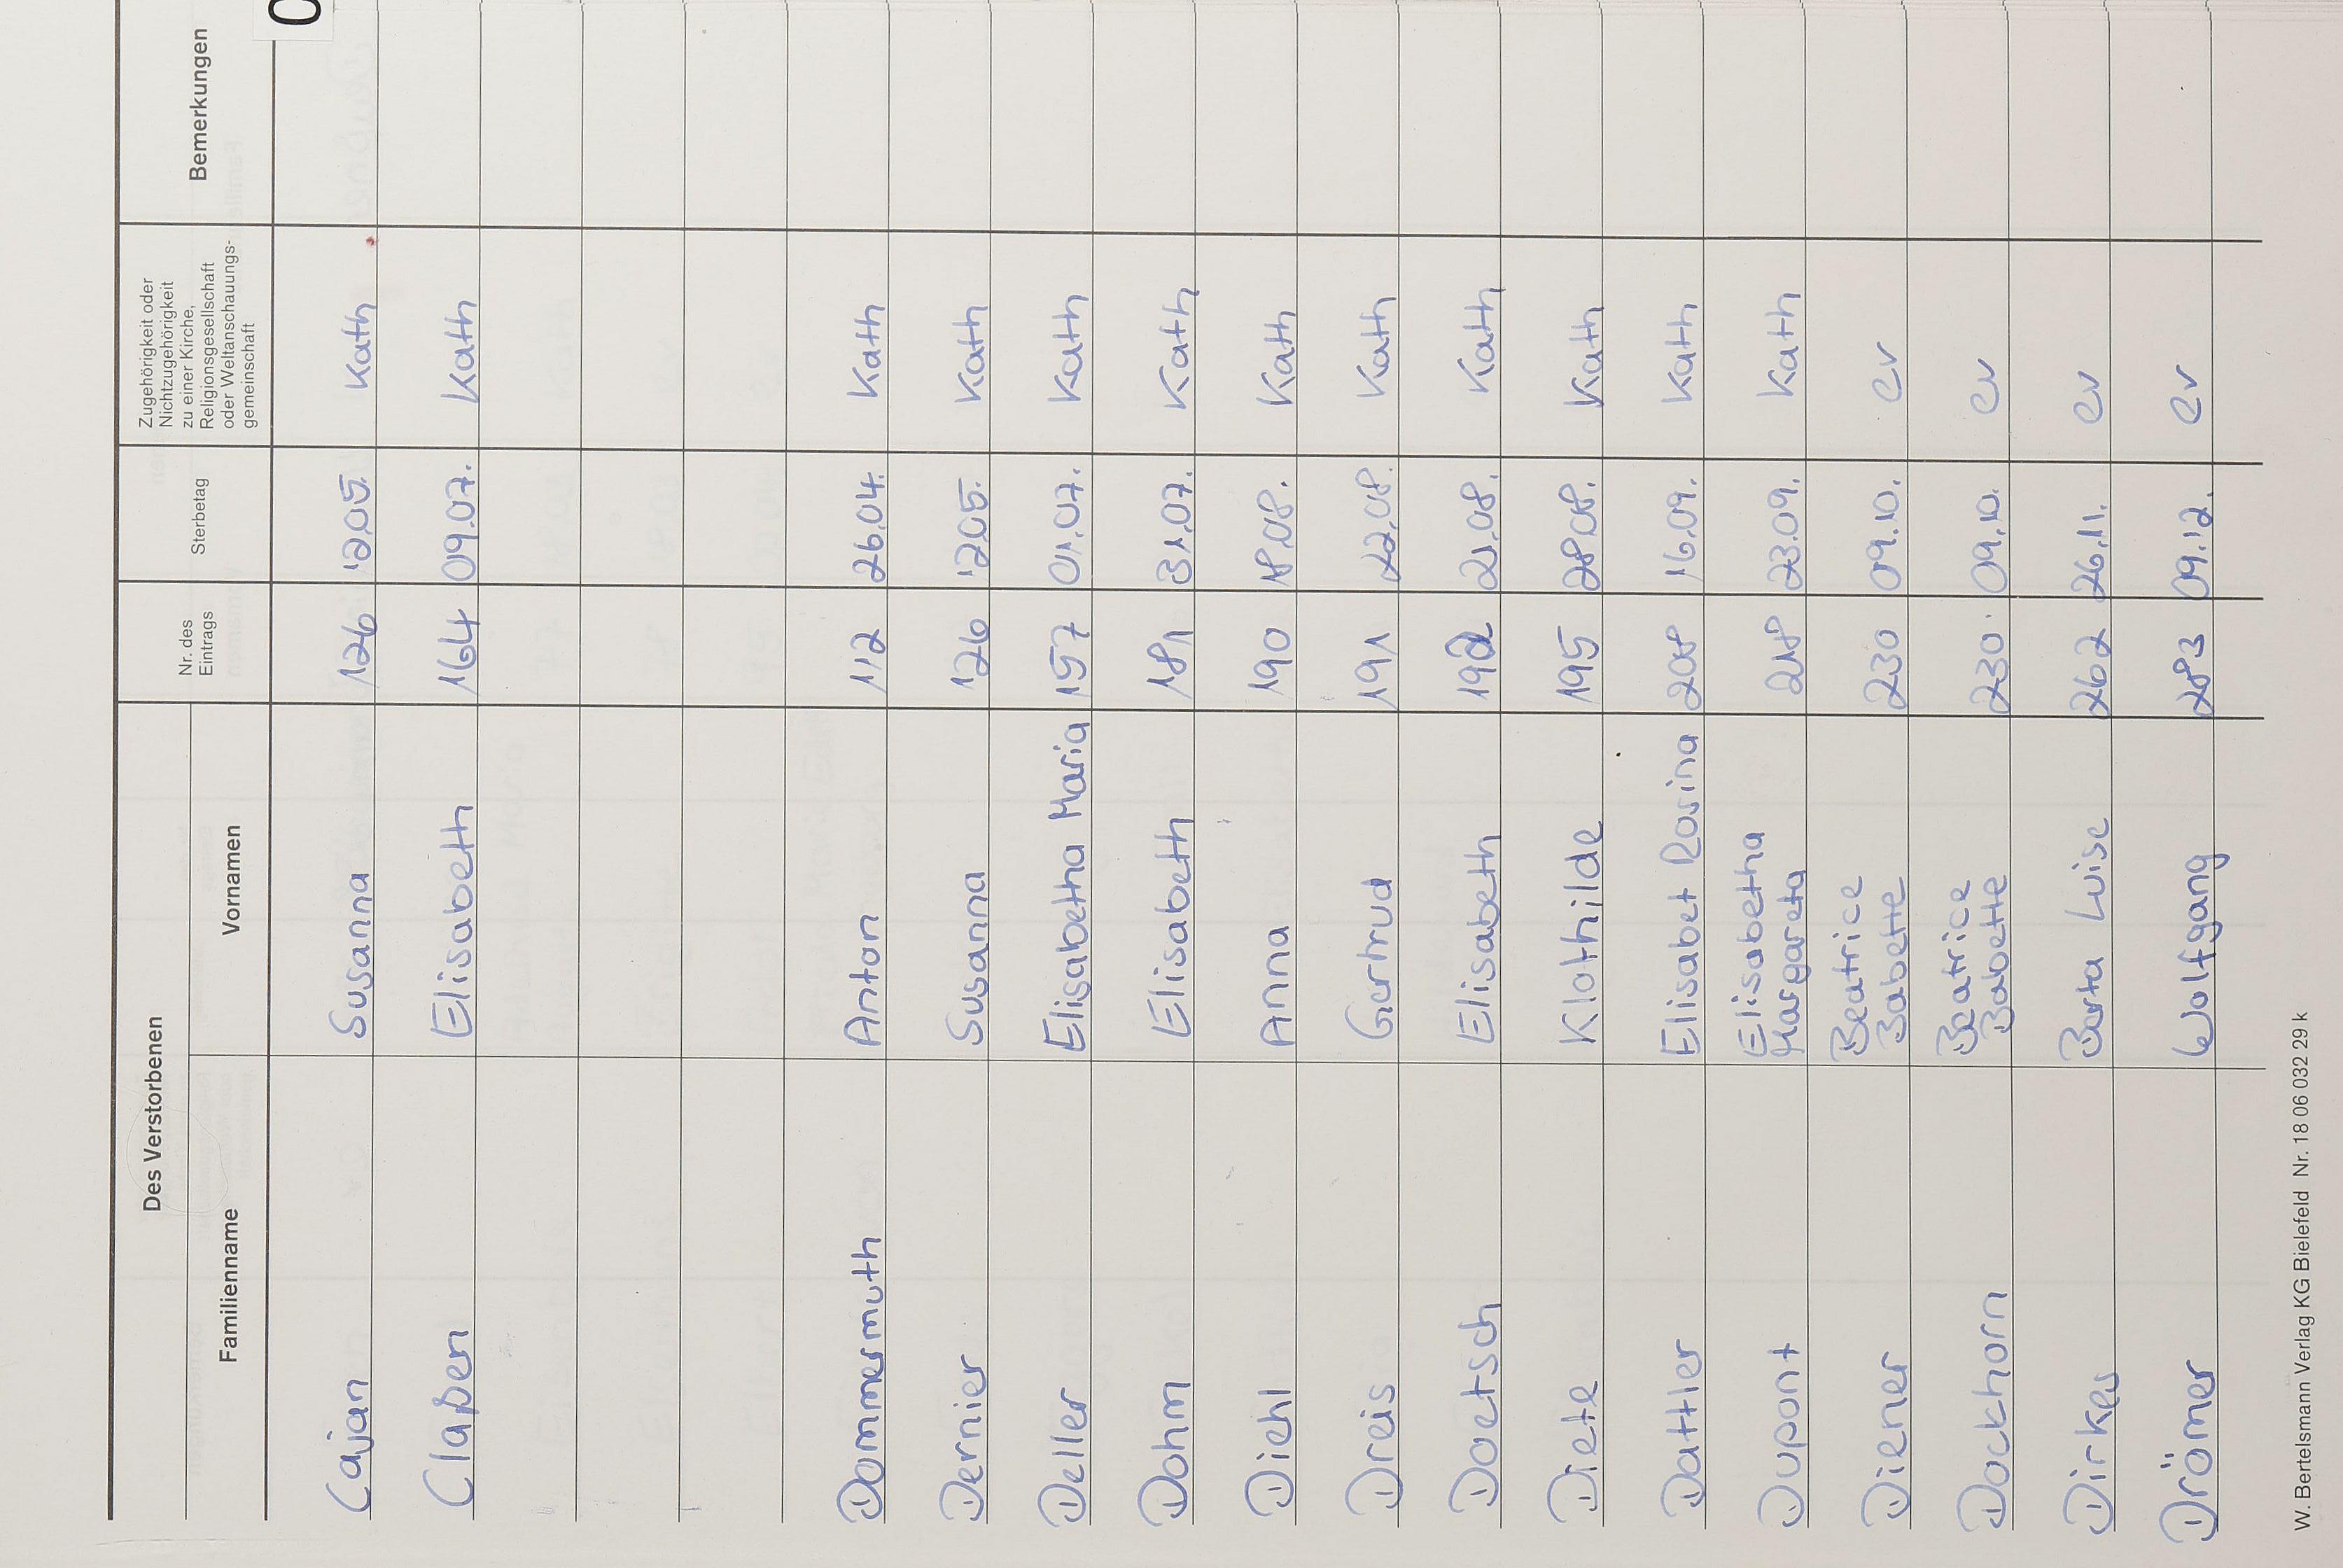 Des Verstorbenen
Familienname Vornamen Nr. des Eintrags Sterbetag Zugehörigkeit oder Nichtzugehörigkeit zu einer Kirche, Religionsgesellschaft oder Weltanschauungs-gemeinschaft Bemerkungen
Cajan Susanna 126 12.05. Kath
Claßen Elisabeth 164 09.07. Kath
Dommermuth Anton 112 26.04. Kath
Dernier Susanna 126 12.05. Kath
Deller Elisabetha Maria 157 01.07. Kath
Dohm Elisabeth 181 31.07. Kath
Diehl Anna 190 18.08. Kath
Dreis Gertrud 191 22.08. Kath
Doetsch Elisabeth 192 21.08. Kath
Diete Klothilde 195 28.08. Kath
Dattler Elisabet Rosina 208 16.09. Kath
Dupont Elisabetha Margareta 218 23.09. Kath
Diener Beatrice Babette 230 09.10. ev
Dockhorn Beatrice Babette 230 09.10. ev
Dirkes Berta Luise 262 26.11. ev
Drömer Wolfgang 283 09.12. ev
W. Bertelsmann Verlag KG Bielefeld Nr. 18 06 032 29 k